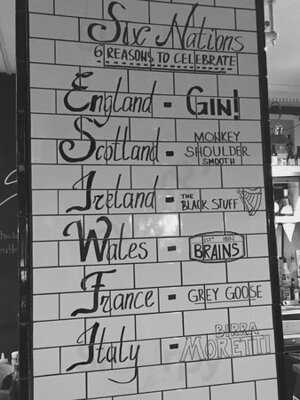 Six Nations
6 REASONS TO CELEBRATE
England - GIN!
Scotland - MONKEY SHOULDER SMOOTH
Ireland - THE BLACK STUFF
Wales - BRAINS
France - GREY GOOSE
Italy - BIRRA MORETTI